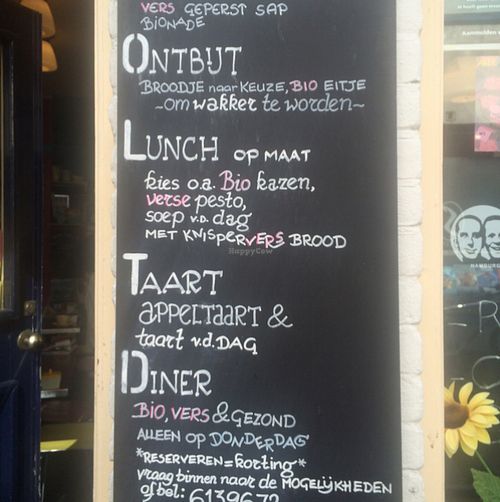 VERS GEPERST SAP
BIONADE
ONTBIJT
BROODJE naar KEUZE, BIO EITJE
~om wakker te worden~
LUNCH OP MAAT
kies o.a. Bio kazen,
verse pesto,
soep v.d. dag
MET KNISPERVERS BROOD
HappyCow
TAART
APPELTAART &
taart v.d. DAG
DINER
BIO, VERS & GEZOND
ALLEEN OP DONDERDAG
*RESERVEREN = korting*
vraag binnen naar de MOGELIJKHEDEN
of bel: 6139672
Aanmelden
HAMBURG